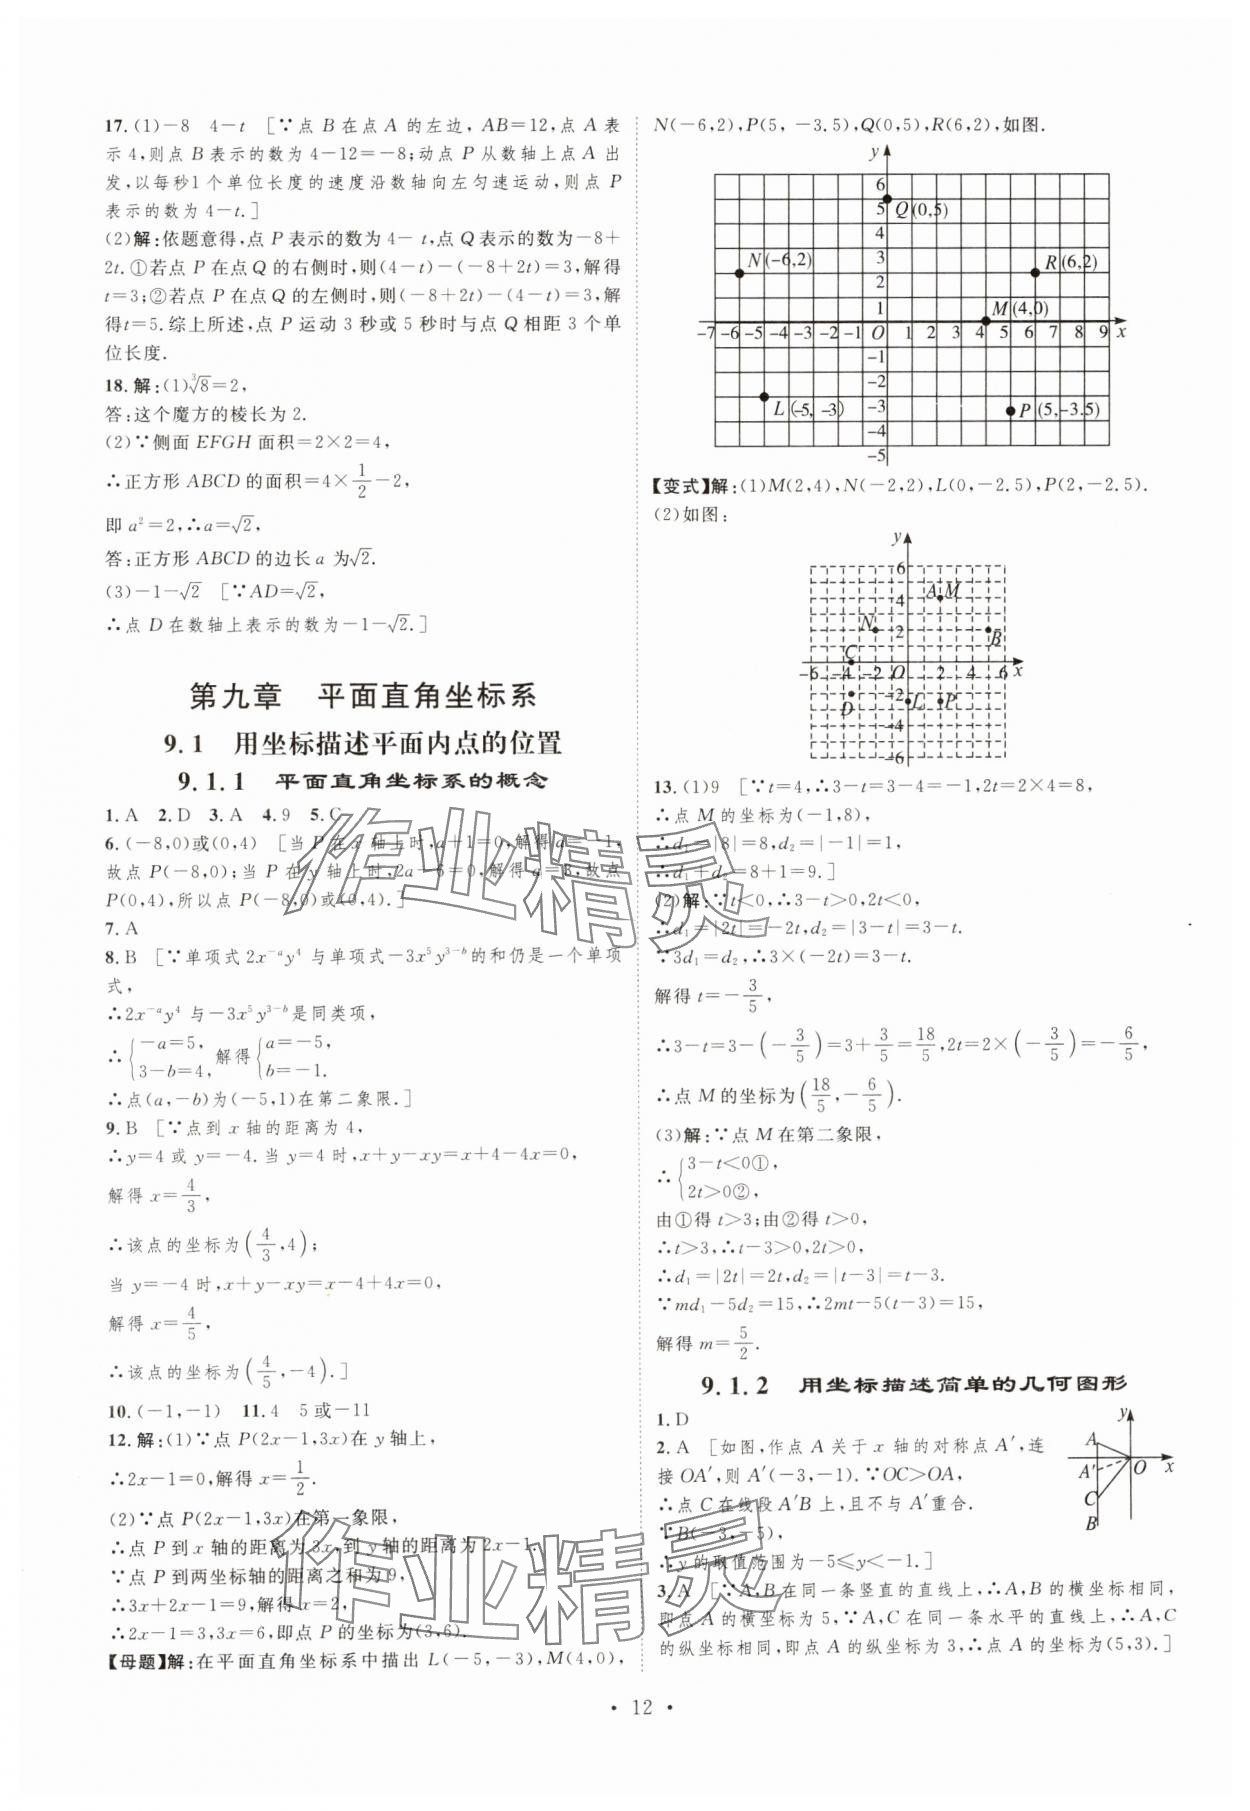 17.(1)－8　4－t　[∵点 B 在点 A 的左边,AB=12,点 A 表
示 4,则点 B 表示的数为 4－12=－8;动点 P 从数轴上点 A 出
发,以每秒1个单位长度的速度沿数轴向左匀速运动,则点 P
表示的数为 4－t.]
(2)解:依题意得,点 P 表示的数为 4－t,点 Q 表示的数为－8＋
2t.①若点 P 在点 Q 的右侧时,则(4－t)－(－8＋2t)=3,解得
t=3;②若点 P 在点 Q 的左侧时,则(－8＋2t)－(4－t)=3,解
得t=5.综上所述,点 P 运动 3 秒或 5 秒时与点 Q 相距 3 个单
位长度.
18.解:(1)∛8=2,
答:这个魔方的棱长为 2.
(2)∵侧面 EFGH 面积=2×2=4,
∴正方形 ABCD 的面积=4×1/2=2,
即 a²=2,∴a=√2,
答:正方形 ABCD 的边长 a 为√2.
(3)－1－√2　[∵AD=√2,
∴点 D 在数轴上表示的数为－1－√2.]
第九章　平面直角坐标系
9.1　用坐标描述平面内点的位置
9.1.1　平面直角坐标系的概念
1.A　2.D　3.A　4.9　5.C
6.(－8,0)或(0,4)　[当 P 在 x 轴上时,a＋1=0,解得 a=－1,
故点 P(－8,0);当 P 在 y 轴上时,2a－6=0,解得 a=3,故点
P(0,4),所以点 P(－8,0)或(0,4).]
7.A
8.B　[∵单项式 2x⁻ᵃy⁴ 与单项式－3x⁵y³⁻ᵇ的和仍是一个单项
式,
∴2x⁻ᵃy⁴ 与－3x⁵y³⁻ᵇ是同类项,
∴{－a=5, 3－b=4, 解得{a=－5, b=－1.
∴点(a,－b)为(－5,1)在第二象限.]
9.B　[∵点到 x 轴的距离为 4,
∴y=4 或 y=－4.当 y=4 时,x＋y－xy=x＋4－4x=0,
解得 x=4/3,
∴该点的坐标为(4/3,4);
当 y=－4 时,x＋y－xy=x－4＋4x=0,
解得 x=4/5,
∴该点的坐标为(4/5,－4).]
10.(－1,－1)　11.4　5或－11
12.解:(1)∵点 P(2x－1,3x)在 y 轴上,
∴2x－1=0,解得 x=1/2.
(2)∵点 P(2x－1,3x)在第一象限,
∴点 P 到 x 轴的距离为 3x,到 y 轴的距离为 2x－1.
∵点 P 到两坐标轴的距离之和为 9,
∴3x＋2x－1=9,解得 x=2,
∴2x－1=3,3x=6,即点 P 的坐标为(3,6).
【母题】解:在平面直角坐标系中描出 L(－5,－3),M(4,0),
N(－6,2),P(5,－3.5),Q(0,5),R(6,2),如图.
y
6
5　Q(0,5)
4
N(－6,2)　3　R(6,2)
2
1　M(4,0)
－7－6－5－4－3－2－1 O 1 2 3 4 5 6 7 8 9 x
－1
－2
L(－5,－3)　－3　P(5,－3.5)
－4
－5
【变式】解:(1)M(2,4),N(－2,2),L(0,－2.5),P(2,－2.5).
(2)如图:
y
6
4　A　M
N　2　B
C
－6　－4　－2　O　2　4　6　x
D　－2　L　P
－4
－6
13.(1)9　[∵t=4,∴3－t=3－4=－1,2t=2×4=8,
∴点 M 的坐标为(－1,8),
∴d₁=|8|=8,d₂=|－1|=1,
∴d₁＋d₂=8＋1=9.]
(2)解:∵t<0,∴3－t>0,2t<0,
∴d₁=|2t|=－2t,d₂=|3－t|=3－t.
∵3d₁=d₂,∴3×(－2t)=3－t.
解得 t=－3/5,
∴3－t=3－(－3/5)=3＋3/5=18/5,2t=2×(－3/5)=－6/5,
∴点 M 的坐标为(18/5,－6/5).
(3)解:∵点 M 在第二象限,
∴{3－t<0①, 2t>0②,
由①得 t>3;由②得 t>0,
∴t>3,∴t－3>0,2t>0,
∴d₁=|2t|=2t,d₂=|t－3|=t－3.
∵md₁－5d₂=15,∴2mt－5(t－3)=15,
解得 m=5/2.
9.1.2　用坐标描述简单的几何图形
1.D
2.A　[如图,作点 A 关于 x 轴的对称点 A′,连
接 OA′,则 A′(－3,－1).∵OC>OA,
∴点 C 在线段 A′B 上,且不与 A′重合.
∵B(－3,－5),
∴y 的取值范围为－5⩽y<－1.]
y
A
A′　O　x
C
B
3.A　[∵A,B 在同一条竖直的直线上,∴A,B 的横坐标相同,
即点 A 的横坐标为 5,∵A,C 在同一条水平的直线上,∴A,C
的纵坐标相同,即点 A 的纵坐标为 3,∴点 A 的坐标为(5,3).]
作业精灵
作业精灵
• 12 •